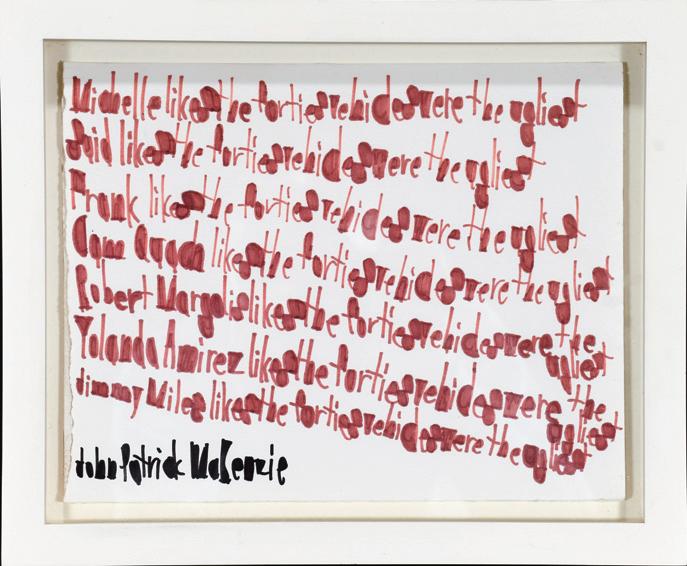 Michelle likes the forties vehicles were the ugliest
Said likes the forties vehicles were the ugliest
Frank likes the forties vehicles were the ugliest
Cam Quach likes the forties vehicles were the ugliest
Robert Margolis likes the forties vehicles were the
ugliest
Yolanda Amirez likes the forties vehicles were the
ugliest
Jimmy Miles likes the forties vehicles were the ugliest
John Patrick McKenzie